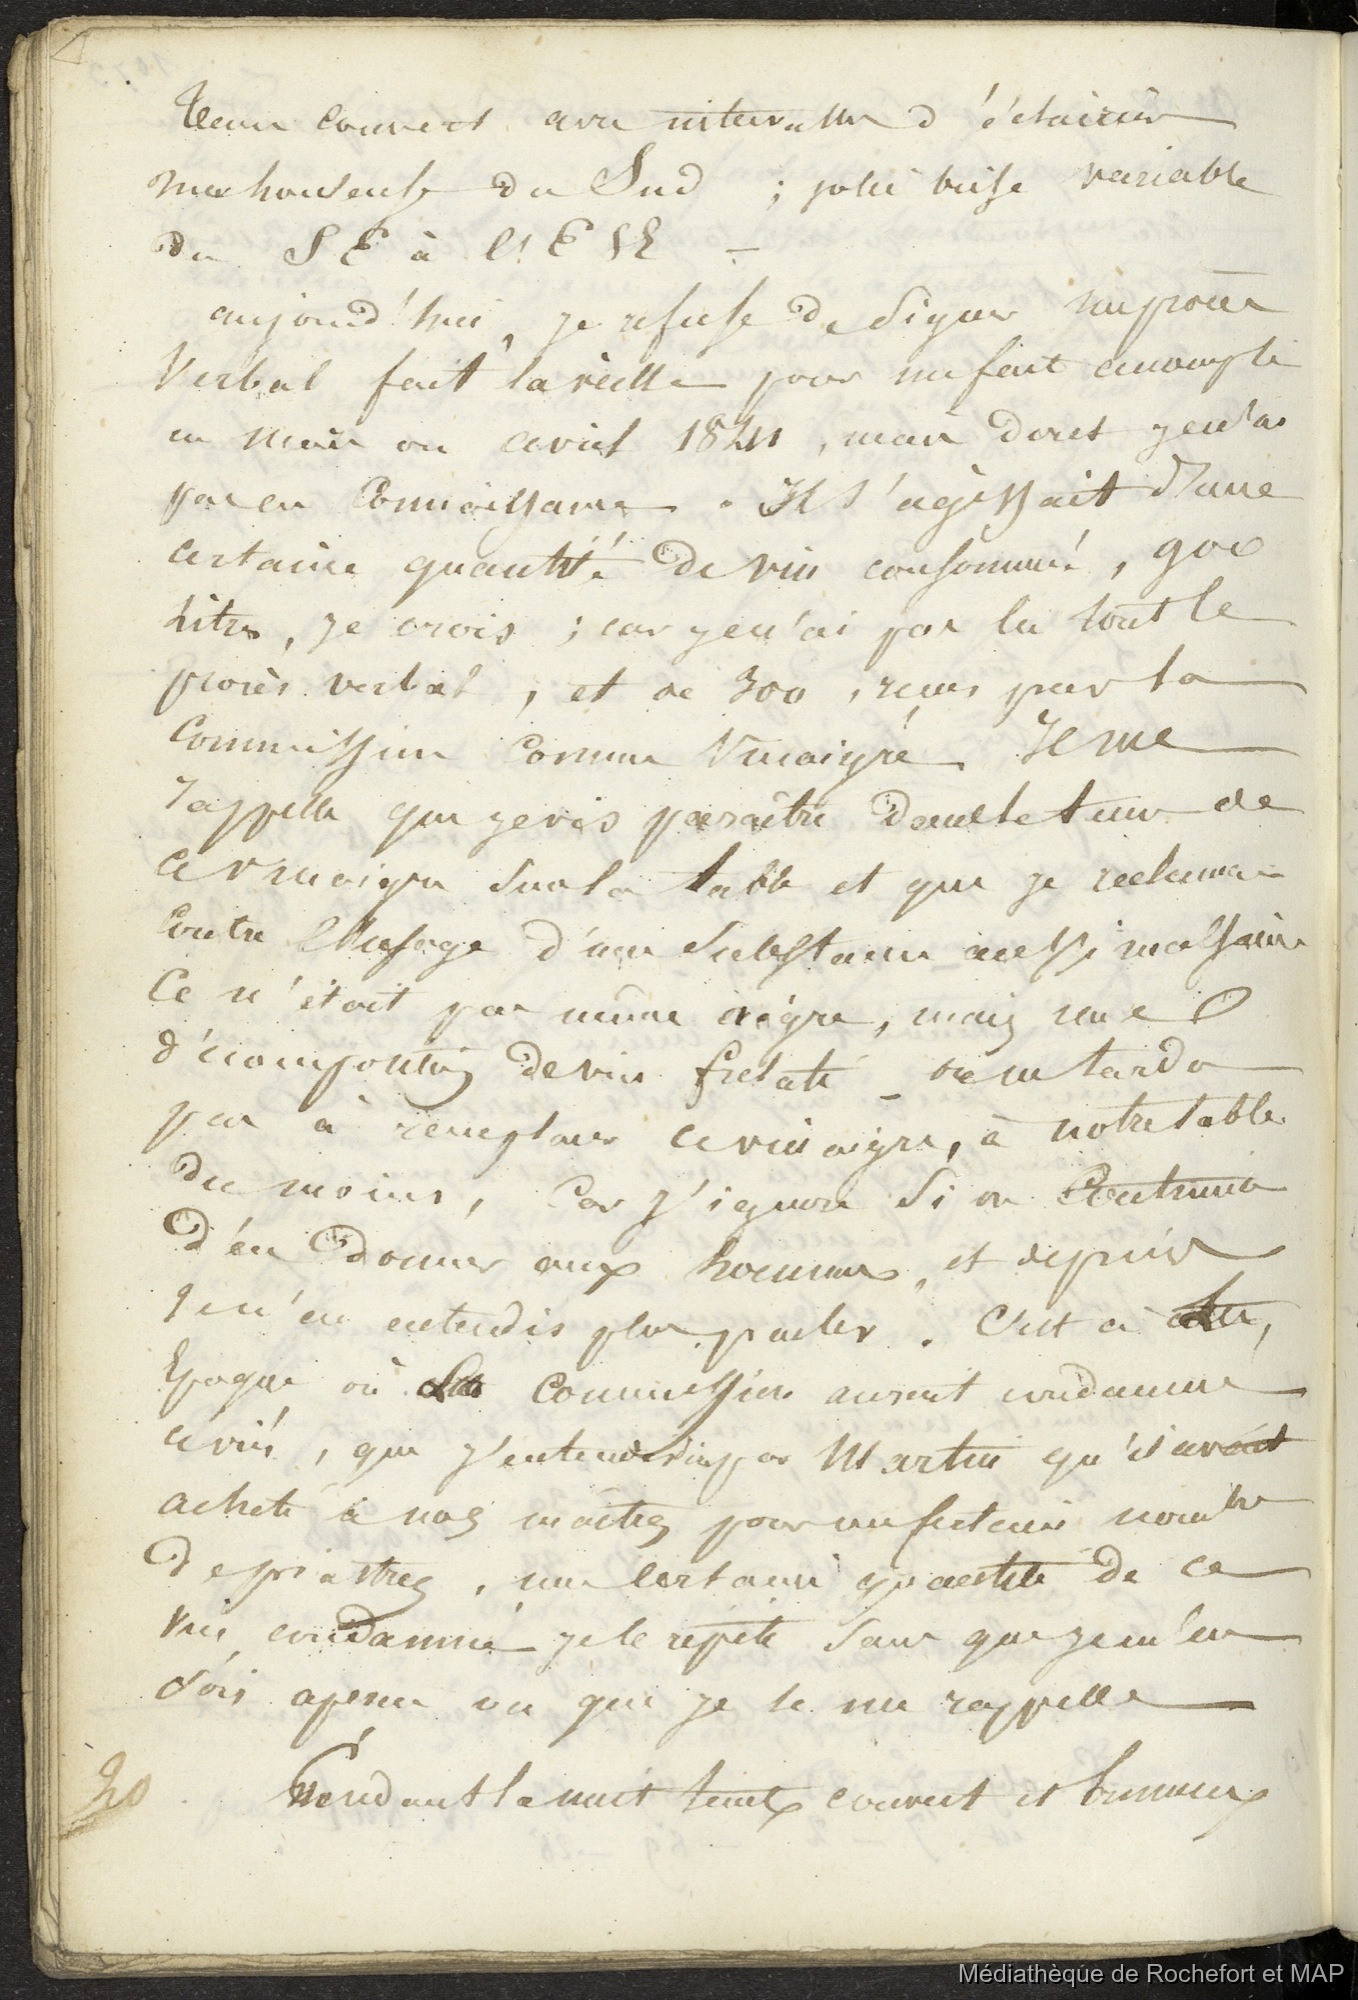 Tems couvert avec intervalles d'éclaircie
mer houleuse du Sud ; jolie brise variable
du SE à l'ESE —
aujourd'hui, je refuse de signer un procès
Verbal fait la veille pour un fait accompli
en Mars ou avril 1841, mais dont je n'ai
pas eu Connaissance. Il s'agissait d'une
certaine quantité de vin consommé, 900
Litres, je crois ; car je n'ai pas lu tout le
procès verbal, et de 300, reçus par la
Commission Comme Vinaigre. Je me
rappelle que je vis paraître dans le tems de
ce vinaigre sur la table et que je réclamai
Contre l'usage d'une substance aussi malsaine
Ce n'était pas même aigre, mais une
décomposition de vin frelaté _ on ne tarda
pas à remplacer ce vinaigre, à notre table
du moins, Car j'ignore si on Continua
d'en donner aux hommes, et depuis
je n'en entendis plus parler. C'est à cette
Epoque où la Commission aurait condamné
ce vin, que j'entendis dire par Martin qu'il avait
acheté à nos maîtres pour un certain nombre
de piastres, une certaine quantité de ce
vin condamné je le répète sans que je m'en
sois aperçu ou que je le me rappelle
20 Pendant la nuit temps couvert et brumeux
Médiathèque de Rochefort et MAP